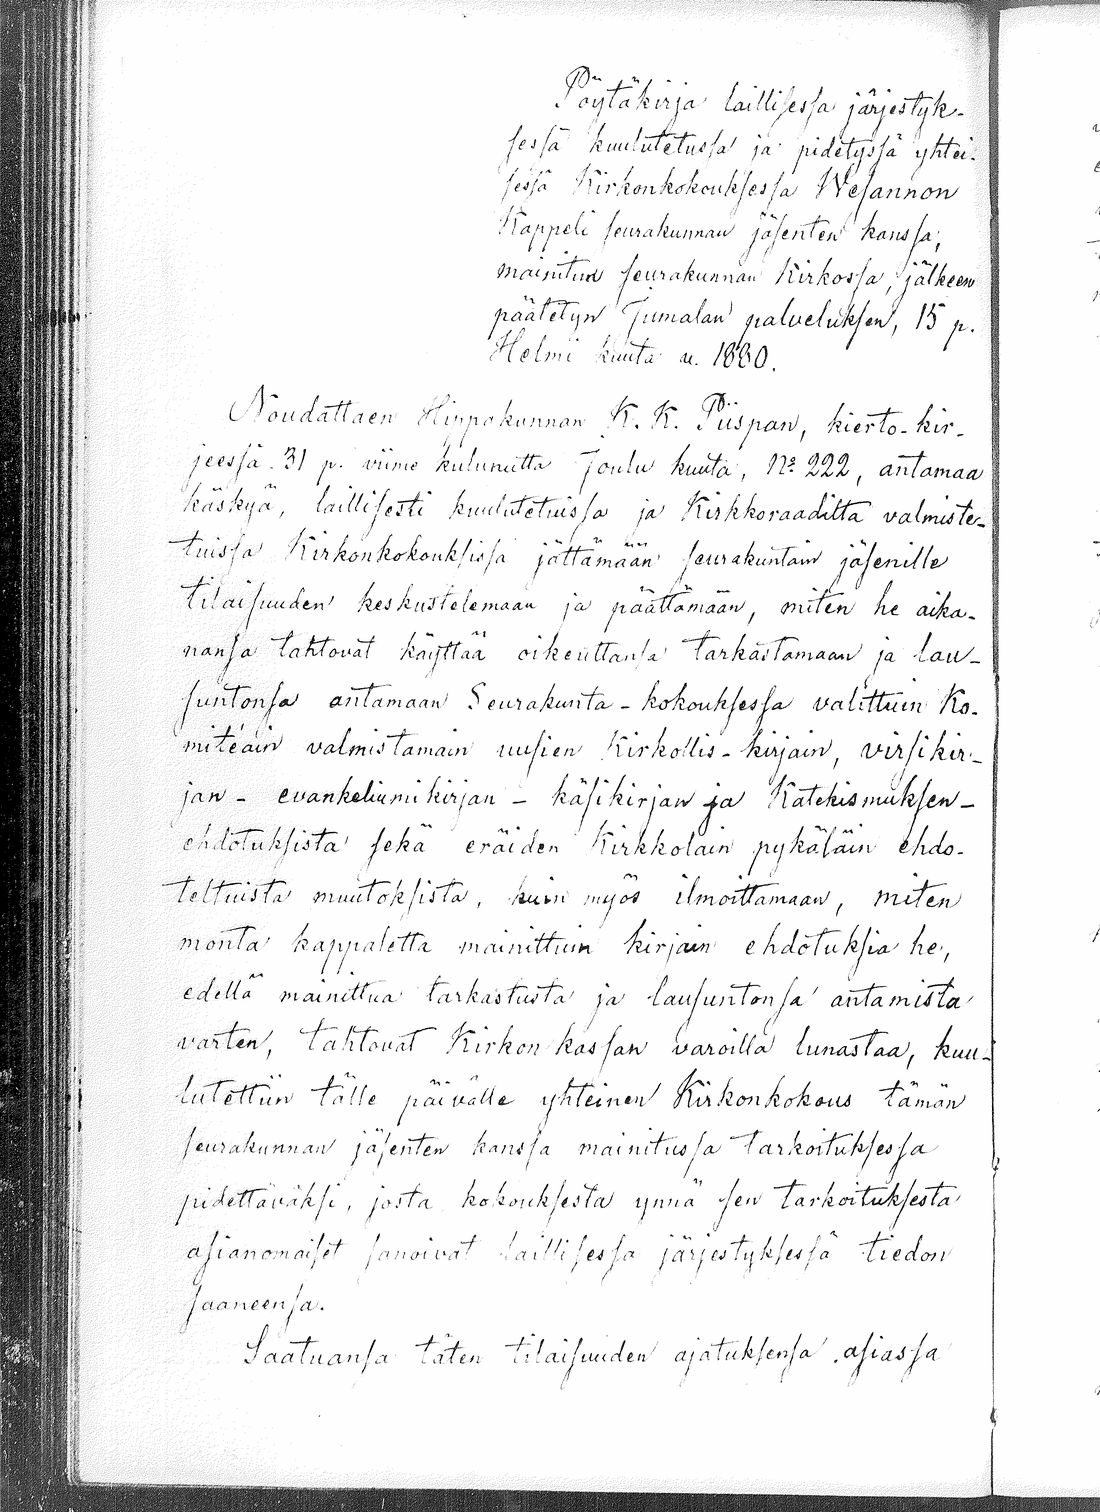 Pöytäkirja laillisessa järjestyk-
sessä kuulutetussa ja pidetyssä yhtei-
sessä Kirkonkokouksessa Wesannon
Kappeli seurakunnan jäsenten kanssa,
mainitun seurakunnan Kirkossa, jälkeen
päätetyn Jumalan palveluksen, 15 p.
Helmi kuuta v. 1880.
Noudattaen Hippakunnan K. K. Piispan, kierto-kir-
jeessä 31 p. viime kulunutta Joulu kuuta, No 222, antamaa
käskyä, laillisesti kuulutetuissa ja Kirkkoraadilta valmiste-
tuissa Kirkonkokouksissa jättämään seurakuntain jäsenille
tilaisuuden keskustelemaan ja päättämään, miten he aika-
nansa tahtovat käyttää oikeuttansa tarkastamaan ja lau-
suntonsa antamaan Seurakunta-kokouksessa valittuin Ko-
miteain valmistamain uusien Kirkollis-kirjain, virsikir-
jan- evankeliumikirjan- käsikirjan ja Katekismuksen-
ehdotuksista sekä eräiden Kirkkolain pykäläin ehdo-
teltuista muutoksista, kuin myös ilmoittamaan, miten
monta kappaletta mainittuin kirjain ehdotuksia he,
edellä mainittua tarkastusta ja lausuntonsa antamista
varten, tahtovat Kirkon kassan varoilla lunastaa, kuu-
lutettiin tälle päivälle yhteinen Kirkonkokous tämän
seurakunnan jäsenten kanssa mainitussa tarkoituksessa
pidettäväksi, josta kokouksesta ynnä sen tarkoituksesta
asianomaiset sanoivat laillisessa järjestyksessä tiedon
saaneensa.
Saatuansa täten tilaisuuden ajatuksensa asiassa